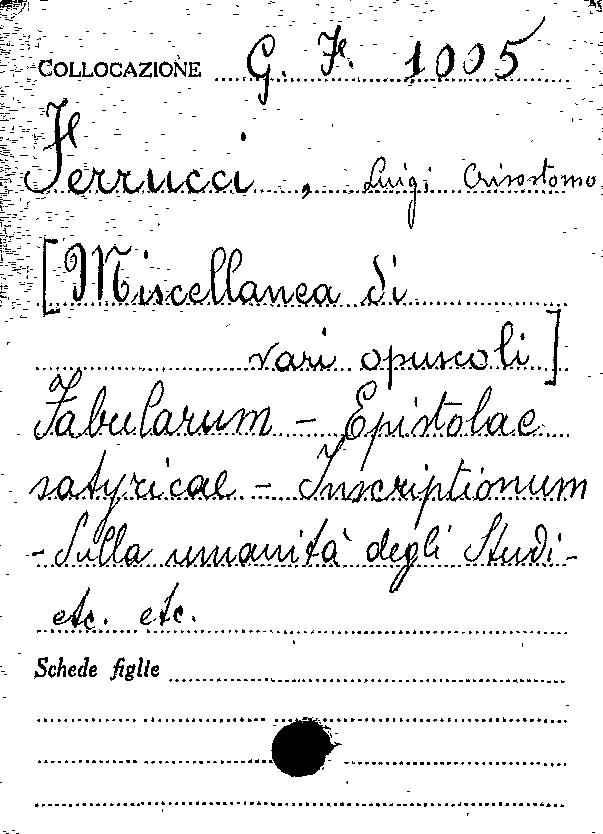 COLLOCAZIONE G. F. 1005
Ferrucci, Luigi Crisostomo
[Miscellanea di
vari opuscoli]
Fabularum - Epistolae
satyricae - Inscriptionum
- Sulla umanità degli Studi -
etc. etc.
Schede figlie